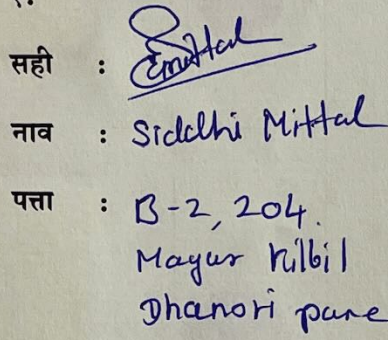 सही :
नाव : Siddhi Mittal
पत्ता : B-2, 204.
Mayur Kilbil
Dhanori pune